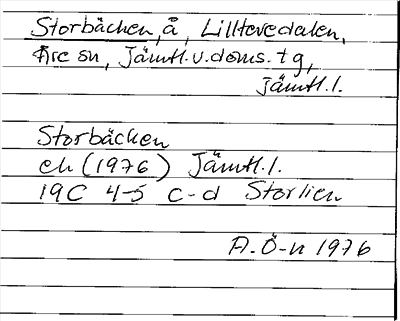 Storbäcken, å, Lilltevedalen,
Åre sn, Jämtl.v.doms.tg,
Jämtl.l.
Storbäcken
ek (1976) Jämtl.l.
19C 4-5 c-d Storlien
A.Ö-n 1976